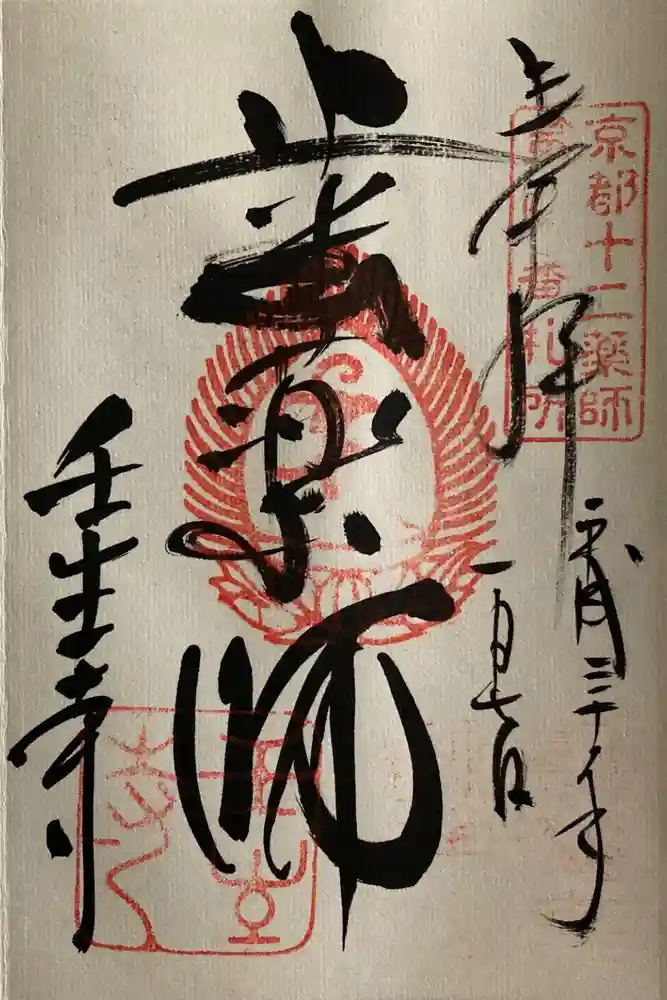 京都十二薬師
番札所
奉拝
三十年
一月七日
歯薬師
壬生寺